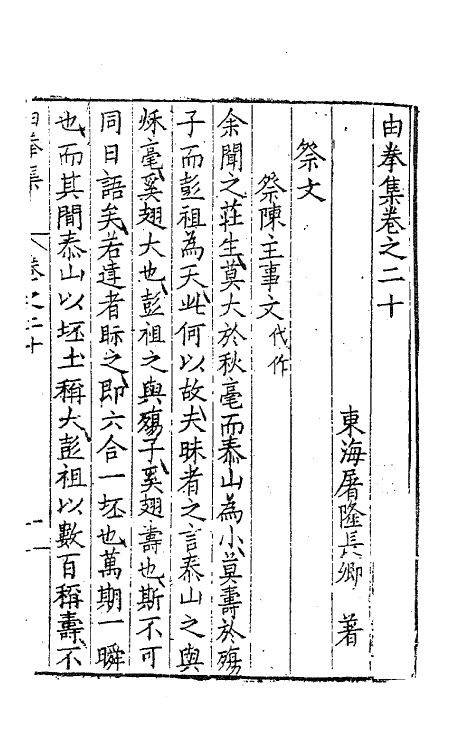 由拳集卷之二十
東海屠隆長卿 著
祭文
祭陳主事文代作
余聞之莊生莫大於秋毫而泰山為小莫壽於殤
子而彭祖為夭此何以故夫昧者之言泰山之與
秌毫奚翅大也彭祖之與殤子奚翅壽也斯不可
同日語矣若達者眎之即六合一坯也萬期一瞬
也而其間泰山以坯土稱大彭祖以數百稱壽不
由拳集 卷之二十 一